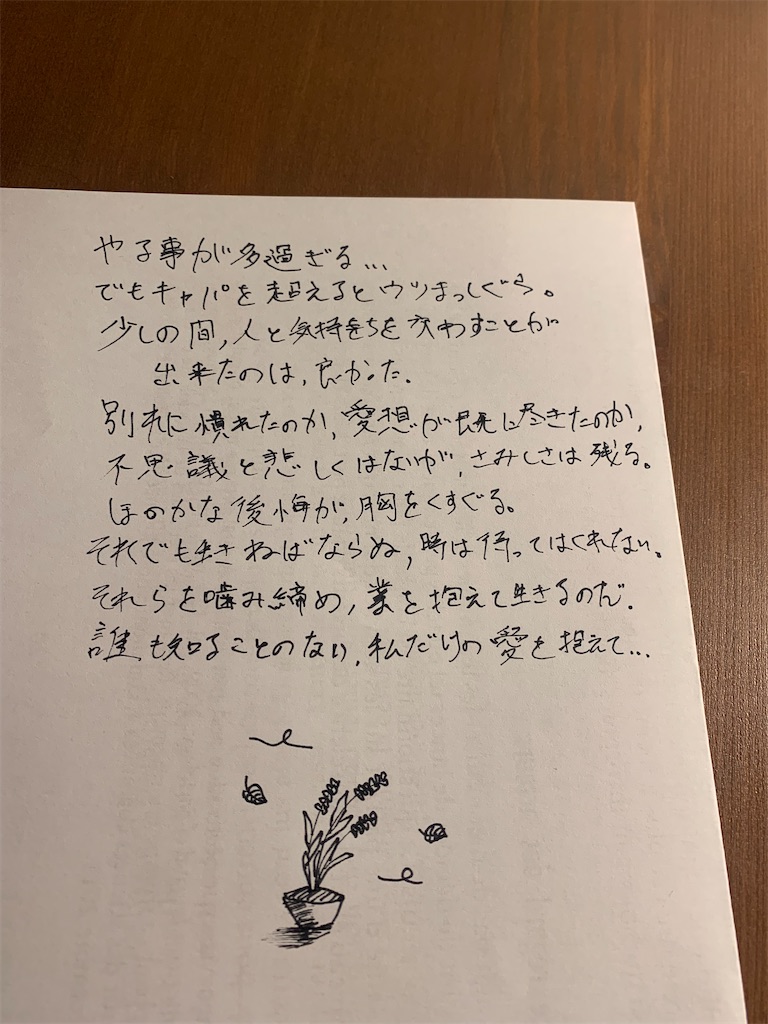 やる事が多過ぎる...
でもキャパを超えるとウツまっしぐら。
少しの間,人と気持ちを交わすことが
出来たのは,良かった.
別れに慣れたのか,愛想が既に尽きたのか,
不思議と悲しくはないが,さみしさは残る。
ほのかな後悔が,胸をくすぐる。
それでも生きねばならぬ,時は待ってはくれない。
それらを噛み締め,業を抱えて生きるのだ.
誰も知ることのない,私だけの愛を抱えて...